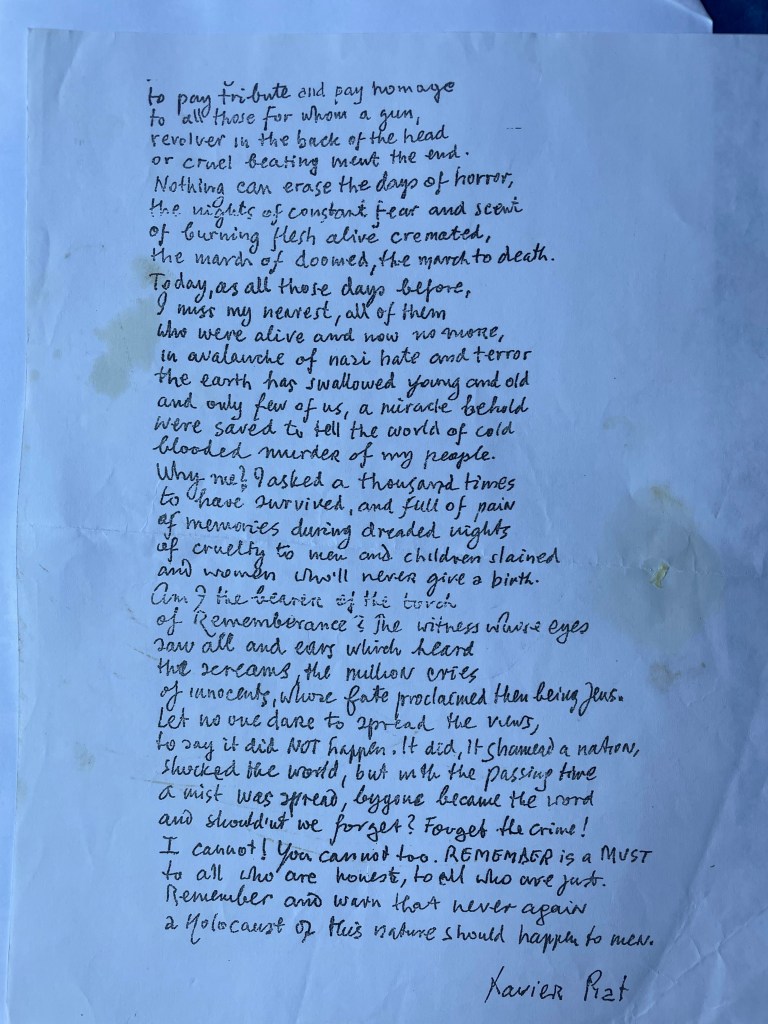 to pay tribute and pay homage
to all those for whom a gun,
revolver in the back of the head
or cruel beating ment the end.
Nothing can erase the days of horror,
the nights of constant fear and scent
of burning flesh alive cremated,
the march of doomed, the march to death.
Today, as all those days before,
I miss my nearest, all of them
who were alive and now no more,
in avalanche of nazi hate and terror
the earth has swallowed young and old
and only few of us, a miracle behold
were saved to tell the world of cold
blooded murder of my people.
Why me? I asked a thousand times
to have survived, and full of pain
of memories during dreaded nights
of cruelty to men and children slained
and women who'll never give a birth.
Am I the bearer of the torch
of Rememberance? The witness whose eyes
saw all and ears which heard
the screams, the million cries
of innocents, whose fate proclaimed then being Jews.
Let no one dare to spread the views,
to say it did NOT happen. It did, it shamed a nation,
shocked the world, but with the passing time
a mist was spread, bygone became the word
and should'nt we forget? Forget the crime!
I cannot! You cannot too. REMEMBER is a MUST
to all who are honest, to all who are just.
Remember and warn that never again
a Holocaust of this nature should happen to men.
Xavier